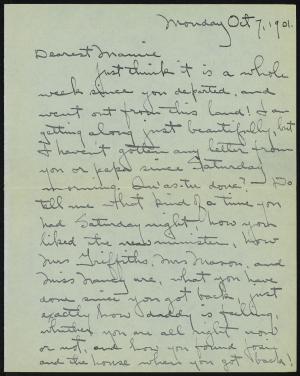 Monday Oct 7, 1901.
Dearest Mamie
Just think it is a whole
week since you departed, and
went out from this land! I am
getting along just beautifully, but
I haven't gotten any letter from
you or papa since Saturday
morning. Do
tell me what kind of a time you
had Saturday night, how you
liked the new minister, how
Mrs Griffiths, Mrs Mason, and
Miss Nancy are, what you have
done since you got back, just
exactly how daddy is feeling,
whether you are all right now
or not, and how you found
and the house when you got back!